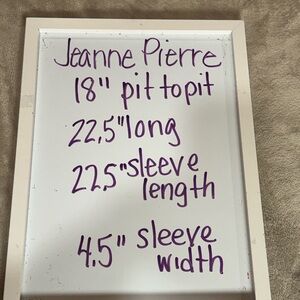 Jeanne Pierre
18" pit to pit
22,5" long
22.5" sleeve
length
4.5" sleeve
width